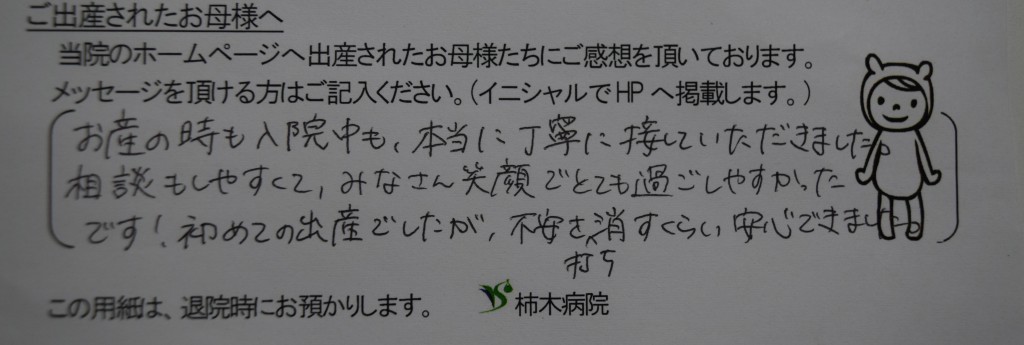 ご出産されたお母様へ
当院のホームページへ出産されたお母様たちにご感想を頂いております。
メッセージを頂ける方はご記入ください。(イニシャルでHPへ掲載します。)
お産の時も入院中も、本当に丁寧に接していただきました。
相談もしやすくて、みなさん笑顔でとても過ごしやすかった
です!初めての出産でしたが、不安を消すくらい安心できました。
打ち
この用紙は、退院時にお預かりします。 柿木病院